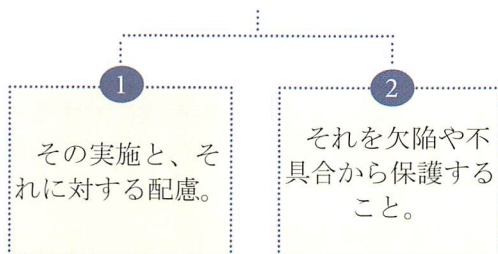 1
その実施と、そ
れに対する配慮。
2
それを欠陥や不
具合から保護する
こと。